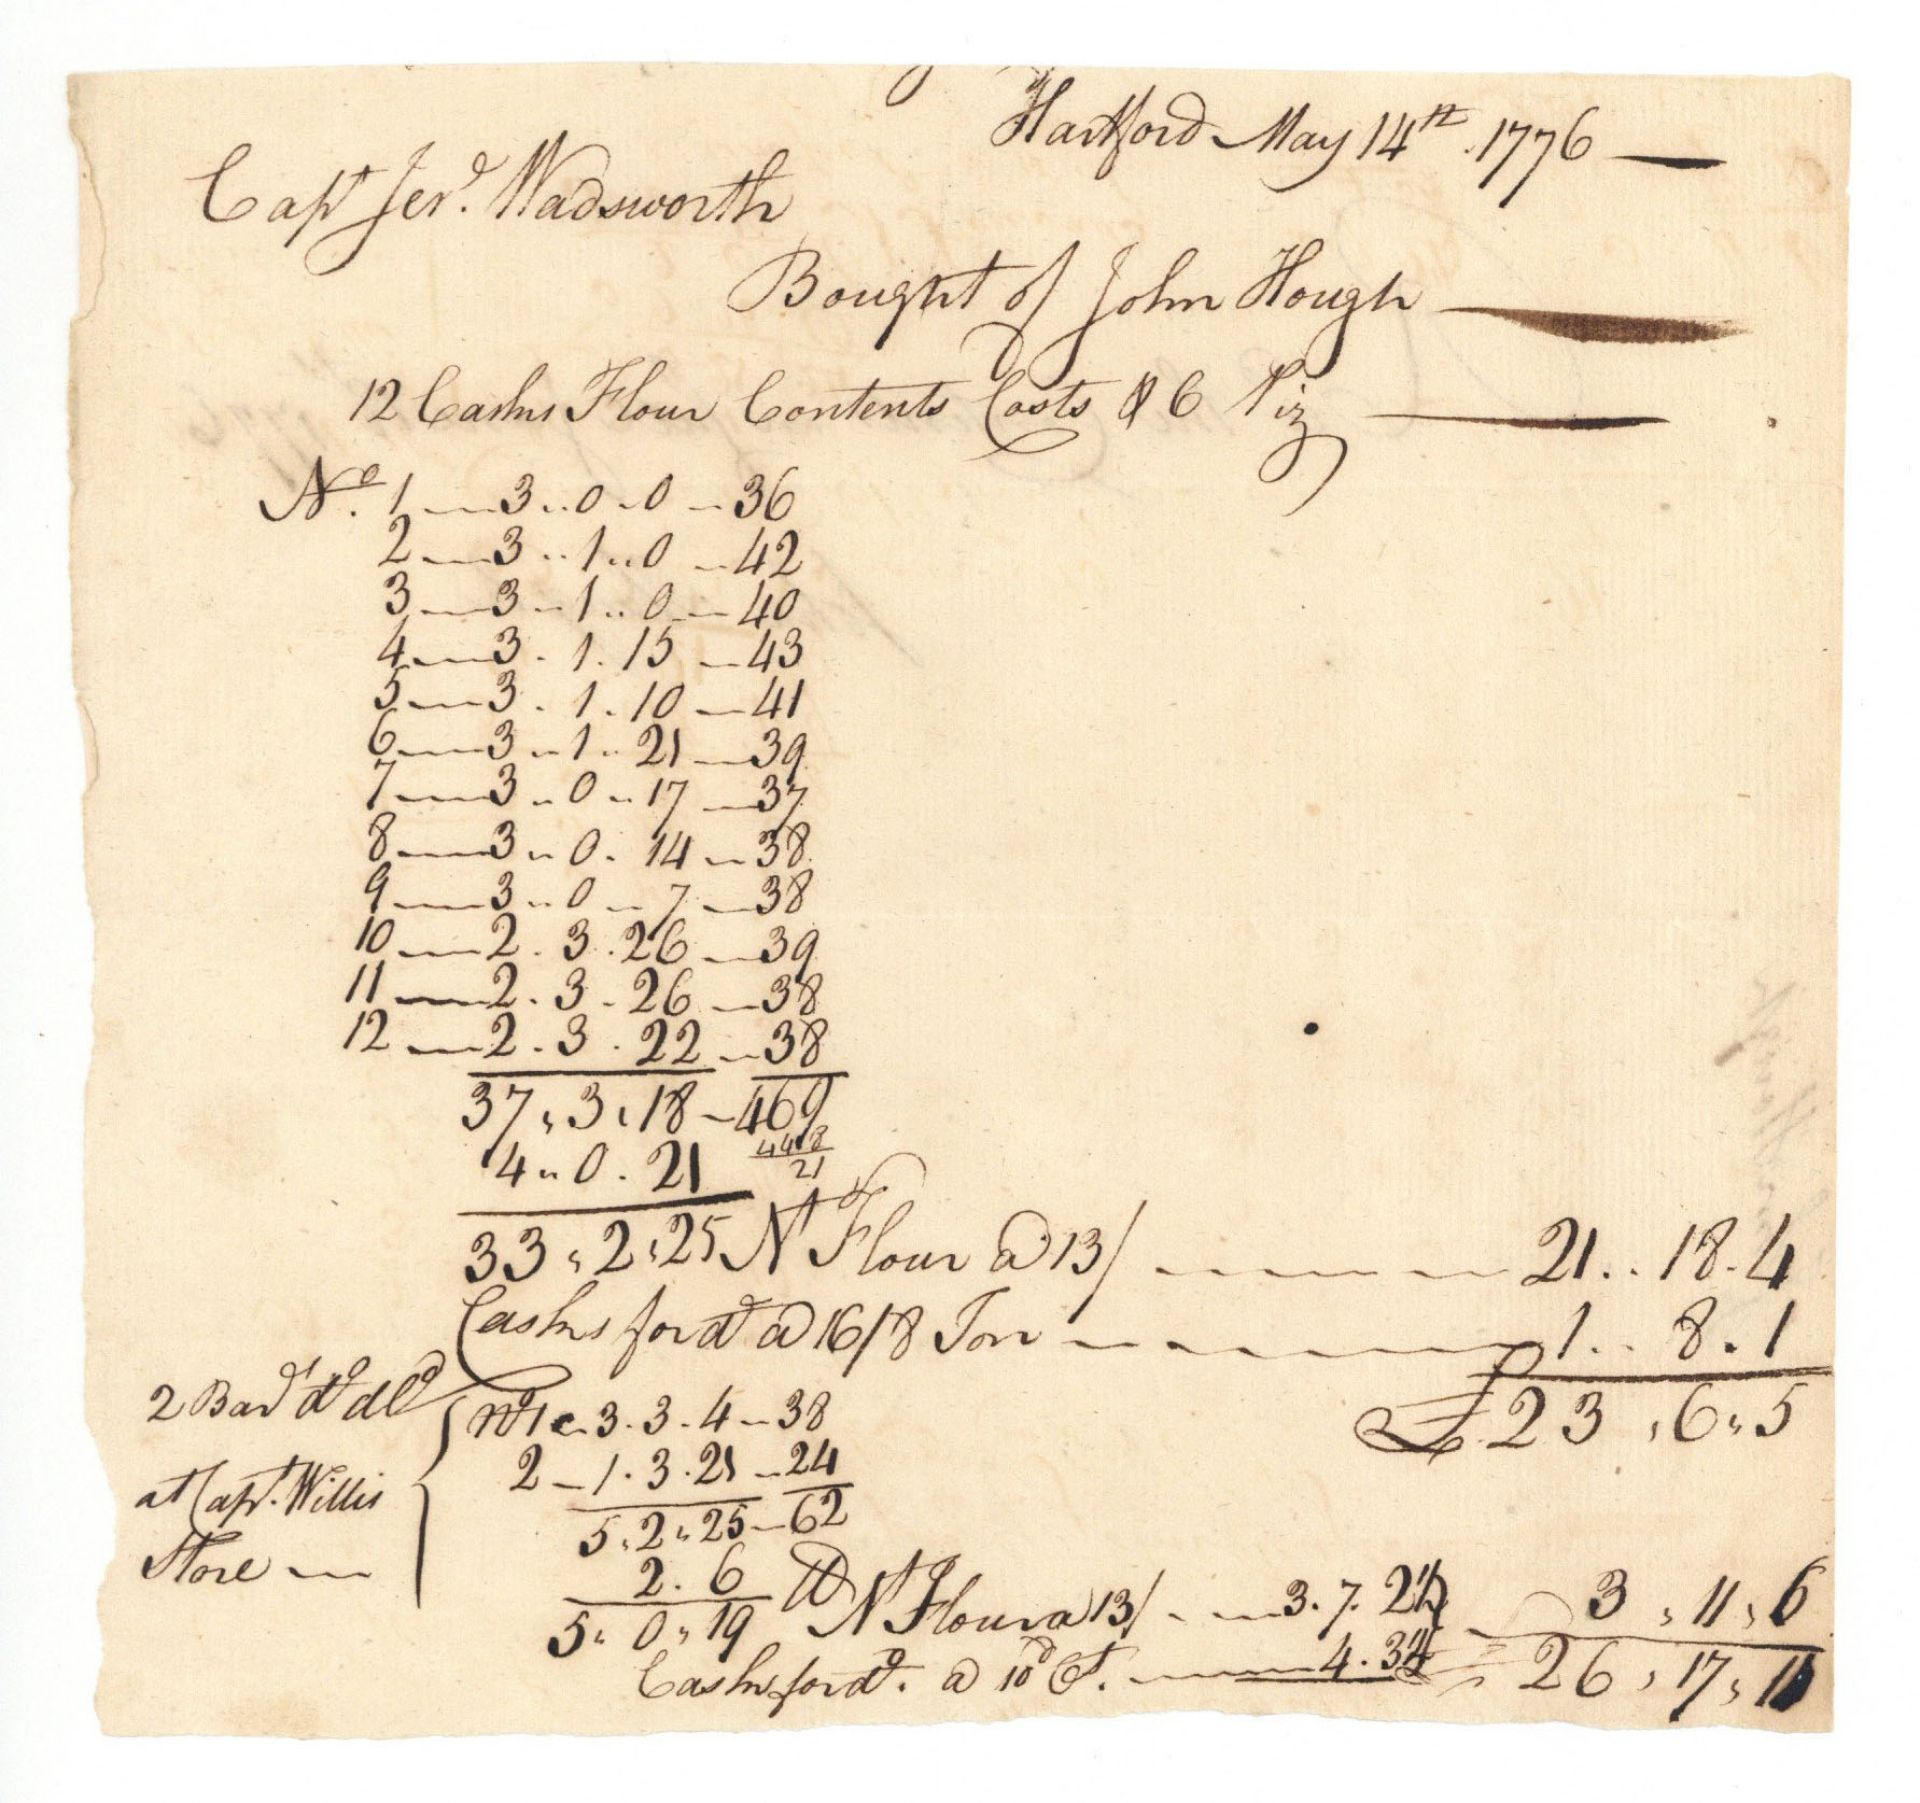 Hartford May 14th. 1776
Capt Jer. Wadsworth
Bought of John Hough
12 Casks Flour Contents Costs & C Viz
No. 1 — 3 .. 0 .. 0 — 36
2 — 3 .. 1 .. 0 — 42
3 — 3 .. 1 .. 0 — 40
4 — 3 . 1 . 15 — 43
5 — 3 . 1 . 10 — 41
6 — 3 .. 1 .. 21 — 39
7 — 3 .. 0 .. 17 — 37
8 — 3 .. 0 . 14 — 38
9 — 3 .. 0 .. 7 — 38
10 — 2 . 3 . 26 — 39
11 — 2 . 3 . 26 — 38
12 — 2 . 3 . 22 — 38
37 , 3 , 18 — 469
4 .. 0 . 21
448
21
33 , 2 , 25 Nt Flour @ 13/ — 21 .. 18 . 4
Casks for do @ 16/8 Ton — 1 .. 8 . 1
£ 23 , 6 , 5
2 Barl do dld
at Capt. Willis
Store —
No 1 — 3 . 3 . 4 — 38
2 — 1 . 3 . 21 — 24
5 , 2 , 25 — 62
2 . 6
5 , 0 , 19 Nt Flour a 13/ — 3 . 7 . 2½ 3 , 11 , 6
Casks for do. @ 10d Ct. — 4 . 3½ 26 , 17 , 11